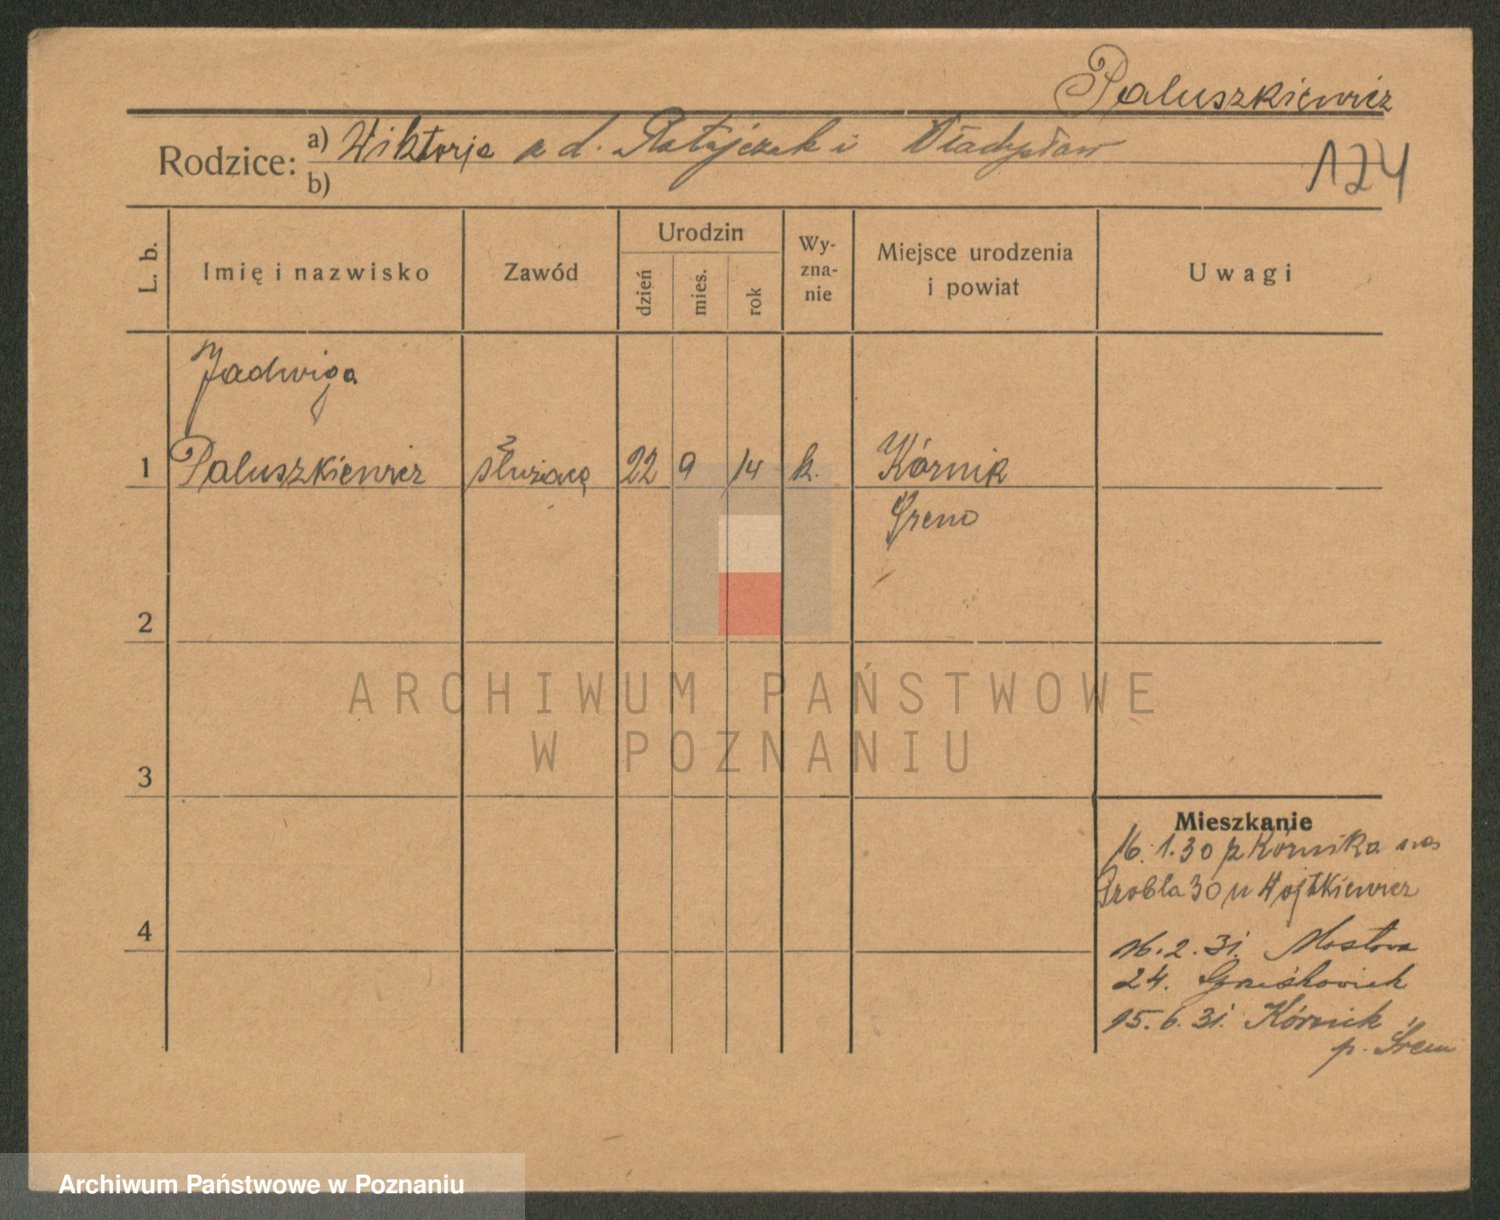 Paluszkiewicz
Rodzice: a) Wiktorja z d. Ratajczak i Władysław
b)
124
L. b.
Imię i nazwisko
Zawód
Urodzin
dzień
mies.
rok
Wy-
zna-
nie
Miejsce urodzenia
i powiat
Uwagi
Jadwiga
1 Paluszkiewicz służącą 22 9 14 k. Kórnik
Śrem
2
3
4
ARCHIWUM PAŃSTWOWE
W POZNANIU
Mieszkanie
16.1.30 z Kórnika
Grobla 30 u Wojtkiewicz
16.2.31. Mostowa
24. Grześkowiak
15.6.31. Kórnik
p. Śrem
Archiwum Państwowe w Poznaniu